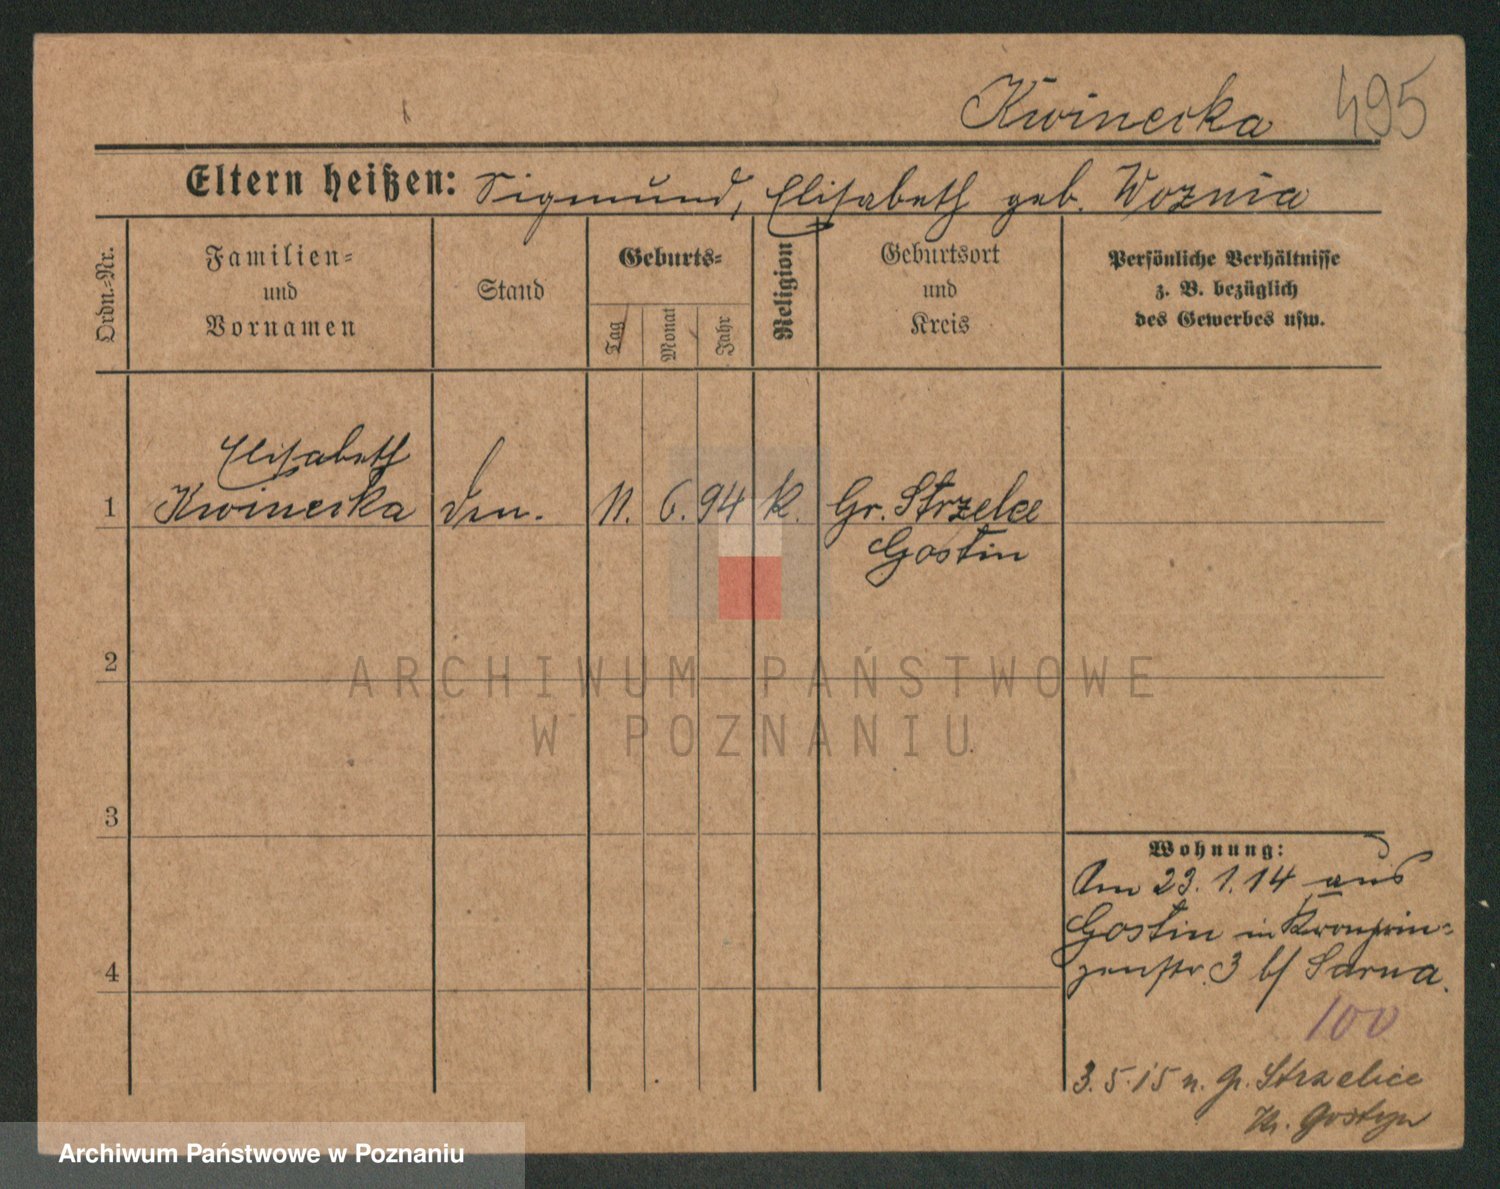 Kwinecka 495
Eltern heißen: Sigmund, Elisabeth geb. Woznia
Ordn.-Nr.
Familien-
und
Vornamen
Stand
Geburts-
Tag
Monat
Jahr
Religion
Geburtsort
und
Kreis
Persönliche Verhältnisse
z. B. bezüglich
des Gewerbes usw.
Elisabeth
1 Kwinecka 11. 6. 94 k. Gr. Strzelce
Gostin
2
ARCHIWUM PAŃSTWOWE
W POZNANIU
3
Wohnung:
Am 23. 1. 14 aus
Gostin in Kronprin-
zenstr. 3 b/ Sarna.
4
100
3. 5. 15 n. Gr. Strzelice
Kr. Gostyn
Archiwum Państwowe w Poznaniu